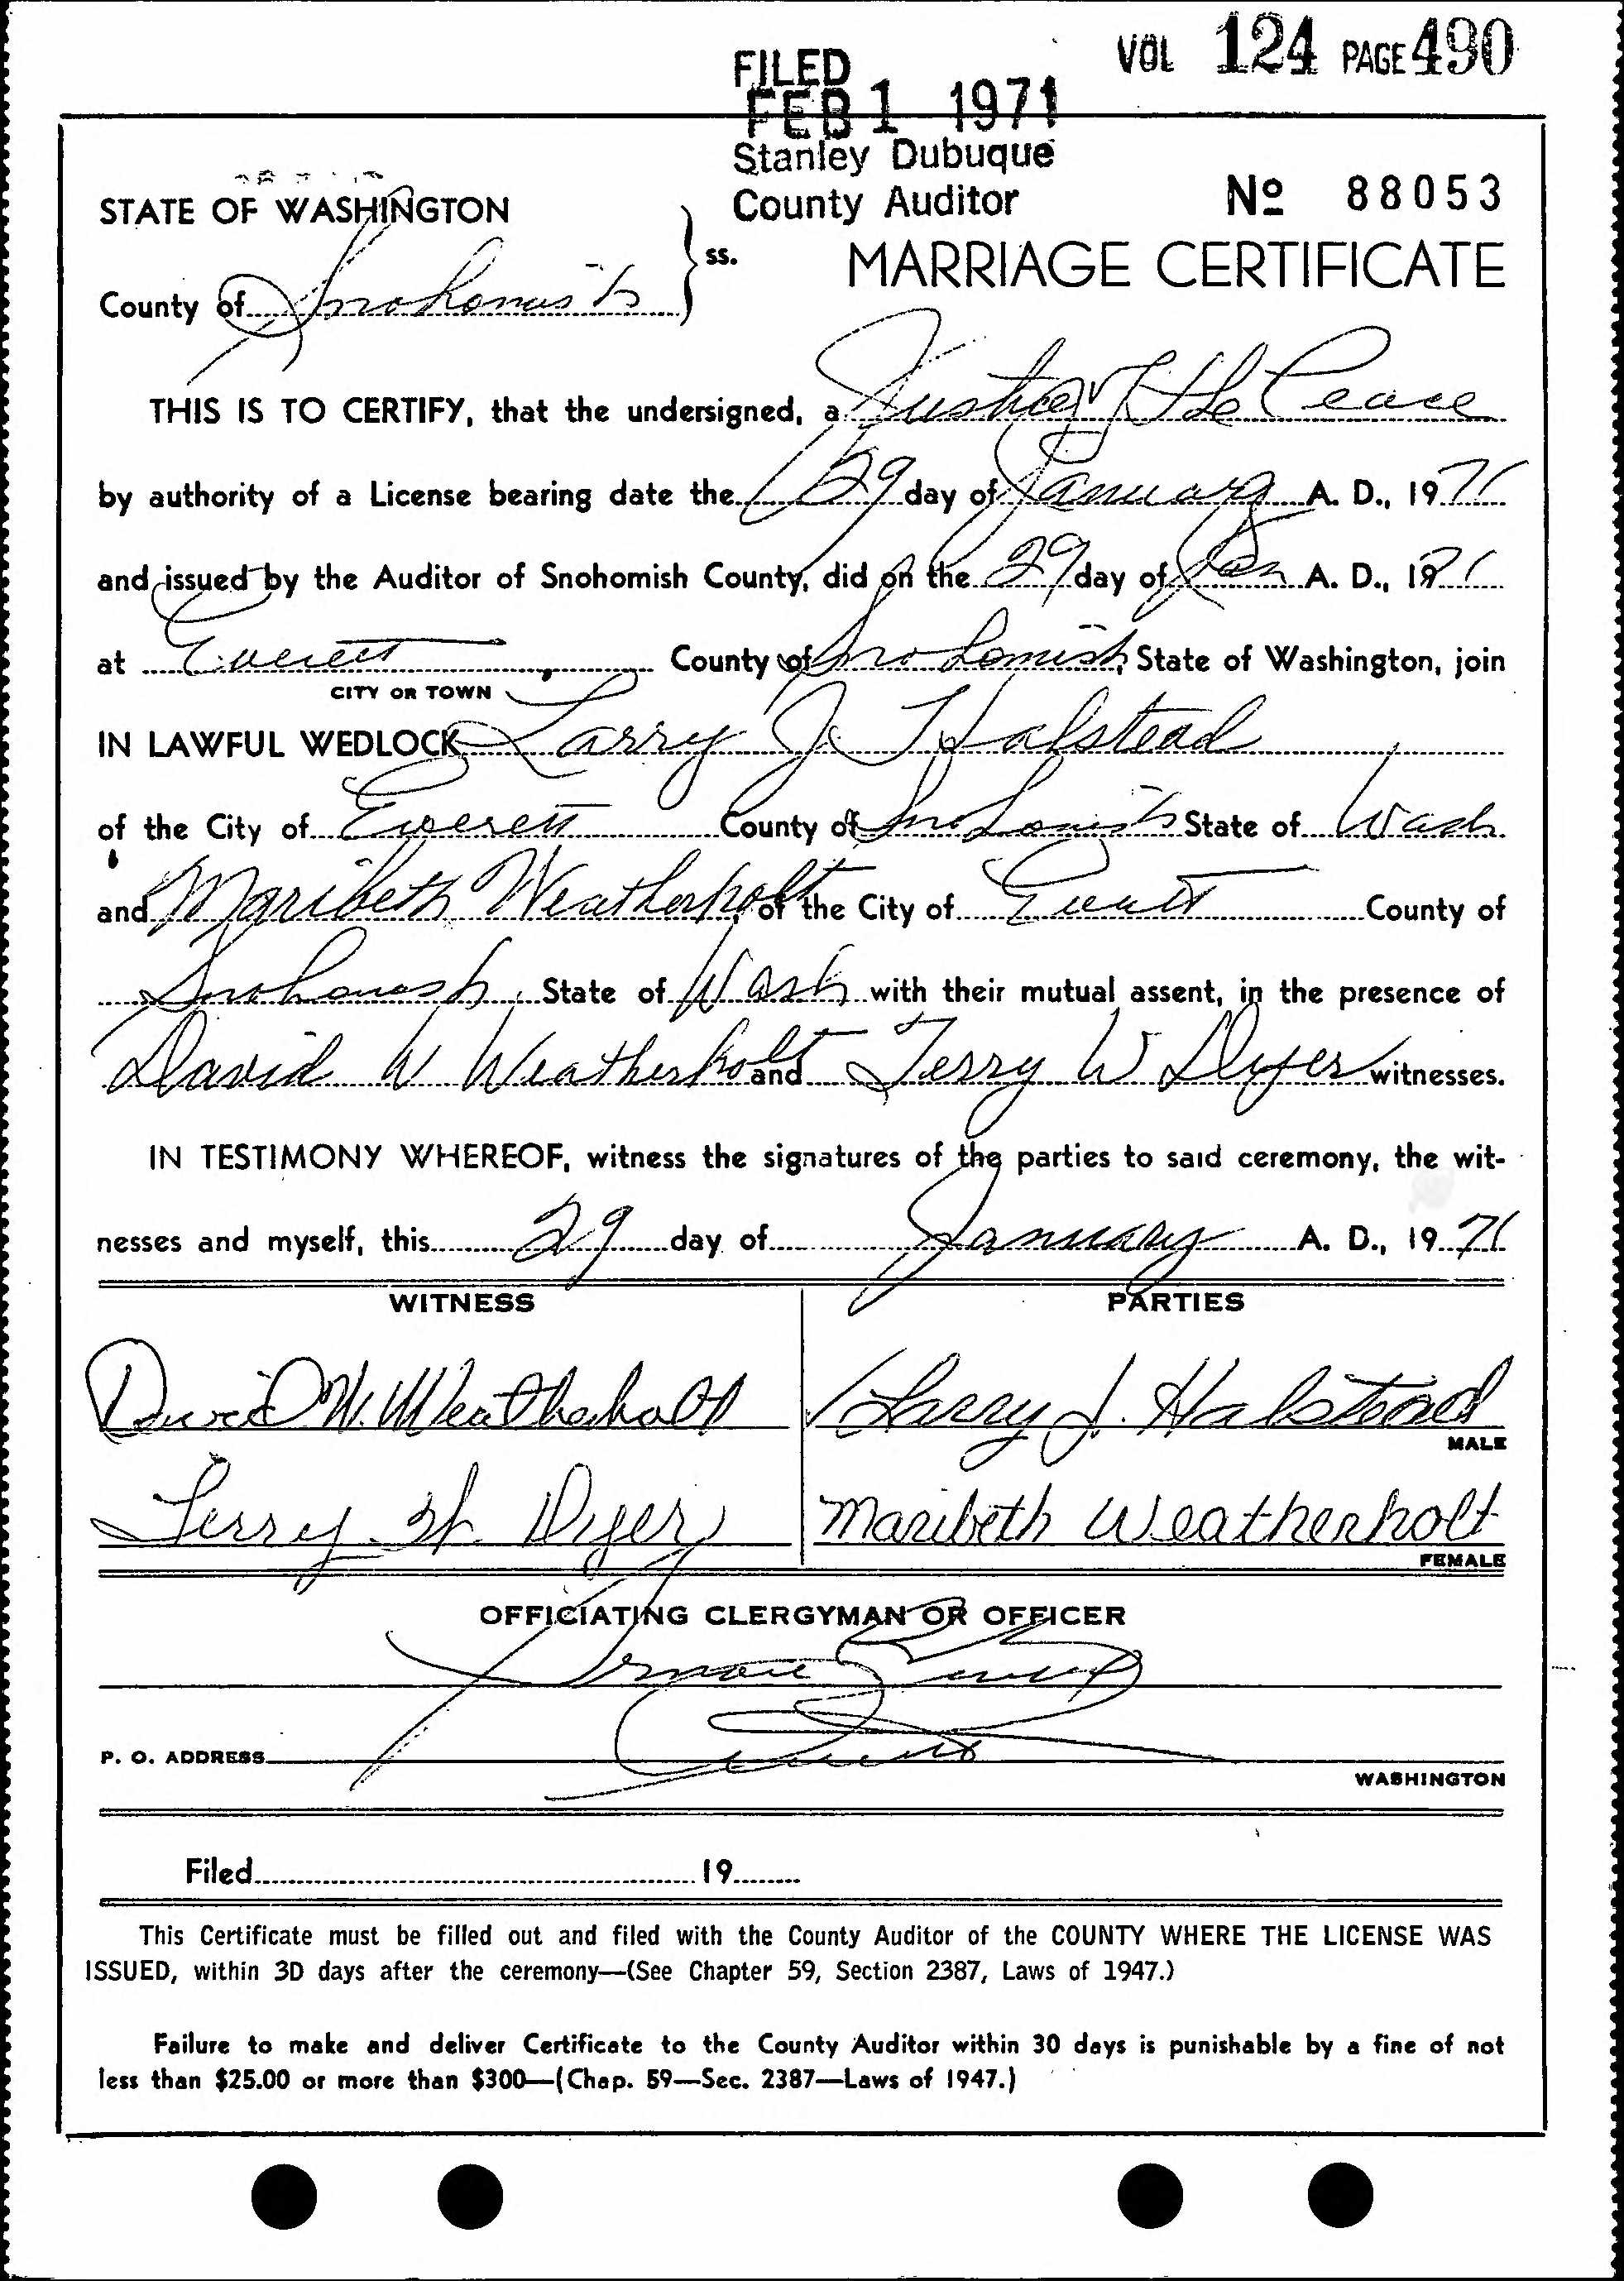 VOL 124 PAGE 490
FILED
FEB 1 1971
Stanley Dubuque
County Auditor
STATE OF WASHINGTON
County of Snohomish
ss.
Nº 88053
MARRIAGE CERTIFICATE
THIS IS TO CERTIFY, that the undersigned, a Justice of the Peace
by authority of a License bearing date the 29 day of January A. D., 1971
and issued by the Auditor of Snohomish County, did on the 29 day of Jan A. D., 1971
at Everett, County of Snohomish, State of Washington, join
CITY OR TOWN
IN LAWFUL WEDLOCK Larry J. Halstead
of the City of Everett County of Snohomish State of Wash
and Maribeth Weatherholt, of the City of Everett County of
Snohomish, State of Wash with their mutual assent, in the presence of
David W Weatherholt and Terry W Dyer witnesses.
IN TESTIMONY WHEREOF, witness the signatures of the parties to said ceremony, the wit-
nesses and myself, this 29 day of January A. D., 1971
WITNESS PARTIES
David W. Weatherholt Larry J. Halstead
MALE
Terry W. Dyer Maribeth Weatherholt
FEMALE
OFFICIATING CLERGYMAN OR OFFICER
P. O. ADDRESS Everett
WASHINGTON
Filed 19
This Certificate must be filled out and filed with the County Auditor of the COUNTY WHERE THE LICENSE WAS
ISSUED, within 3D days after the ceremony—(See Chapter 59, Section 2387, Laws of 1947.)
Failure to make and deliver Certificate to the County Auditor within 30 days is punishable by a fine of not
less than $25.00 or more than $300—(Chap. 59—Sec. 2387—Laws of 1947.)